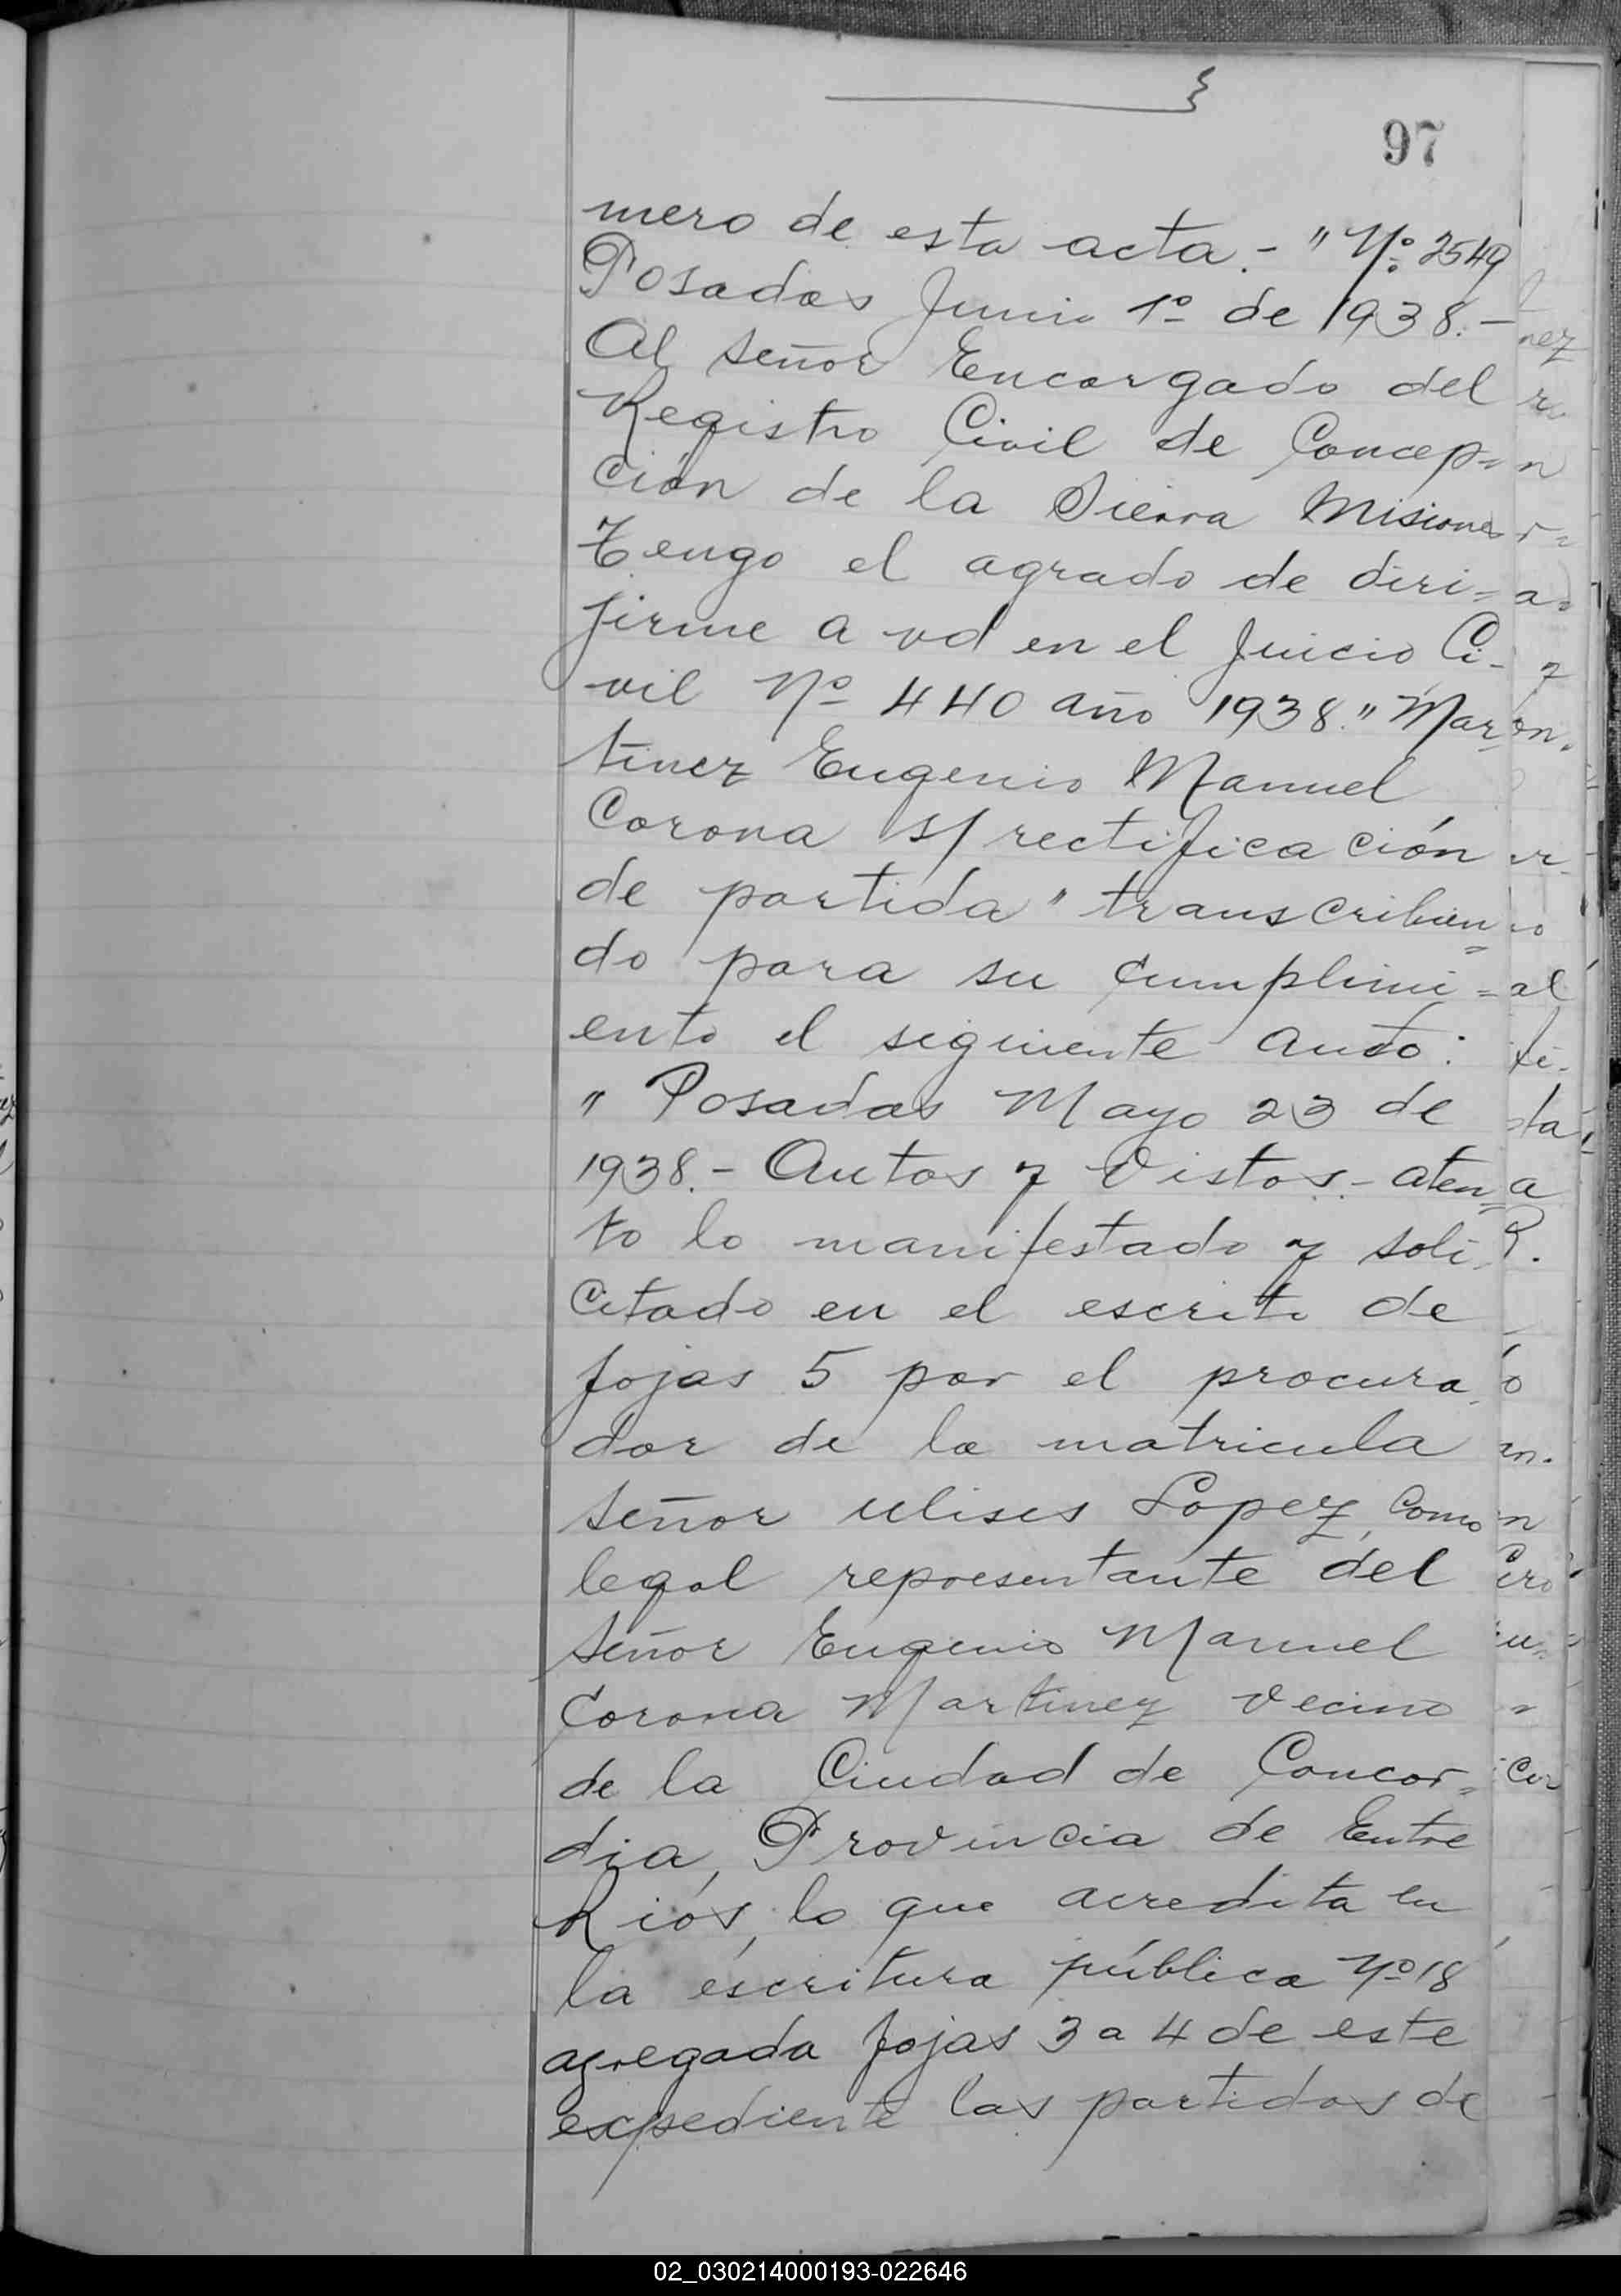 97
mero de esta acta.- "Nº 2549
Posadas Junio 1º de 1938.-
Al señor Encargado del
Registro Civil de Concep=
ción de la Sierra Misiones
Tengo el agrado de diri=
jirme a vd en el Juicio Ci-
vil Nº 440 año 1938." Mar-
tinez Eugenio Manuel
Corona s/ rectificación
de partida" transcribien=
do para su cumplimi=
ento el siguiente auto:
" Posadas Mayo 23 de
1938.- Autos y Vistos.- aten=
to lo manifestado y soli-
citado en el escrito de
fojas 5 por el procura-
dor de la matricula
señor Ulises Lopez, como
legal representante del
señor Eugenio Manuel
Corona Martinez vecino
de la Ciudad de Concor=
dia, Provincia de Entre
Rios, lo que acredita en
la escritura pública Nº 18
agregada fojas 3 a 4 de este
expediente las partidas de
02_030214000193-022646